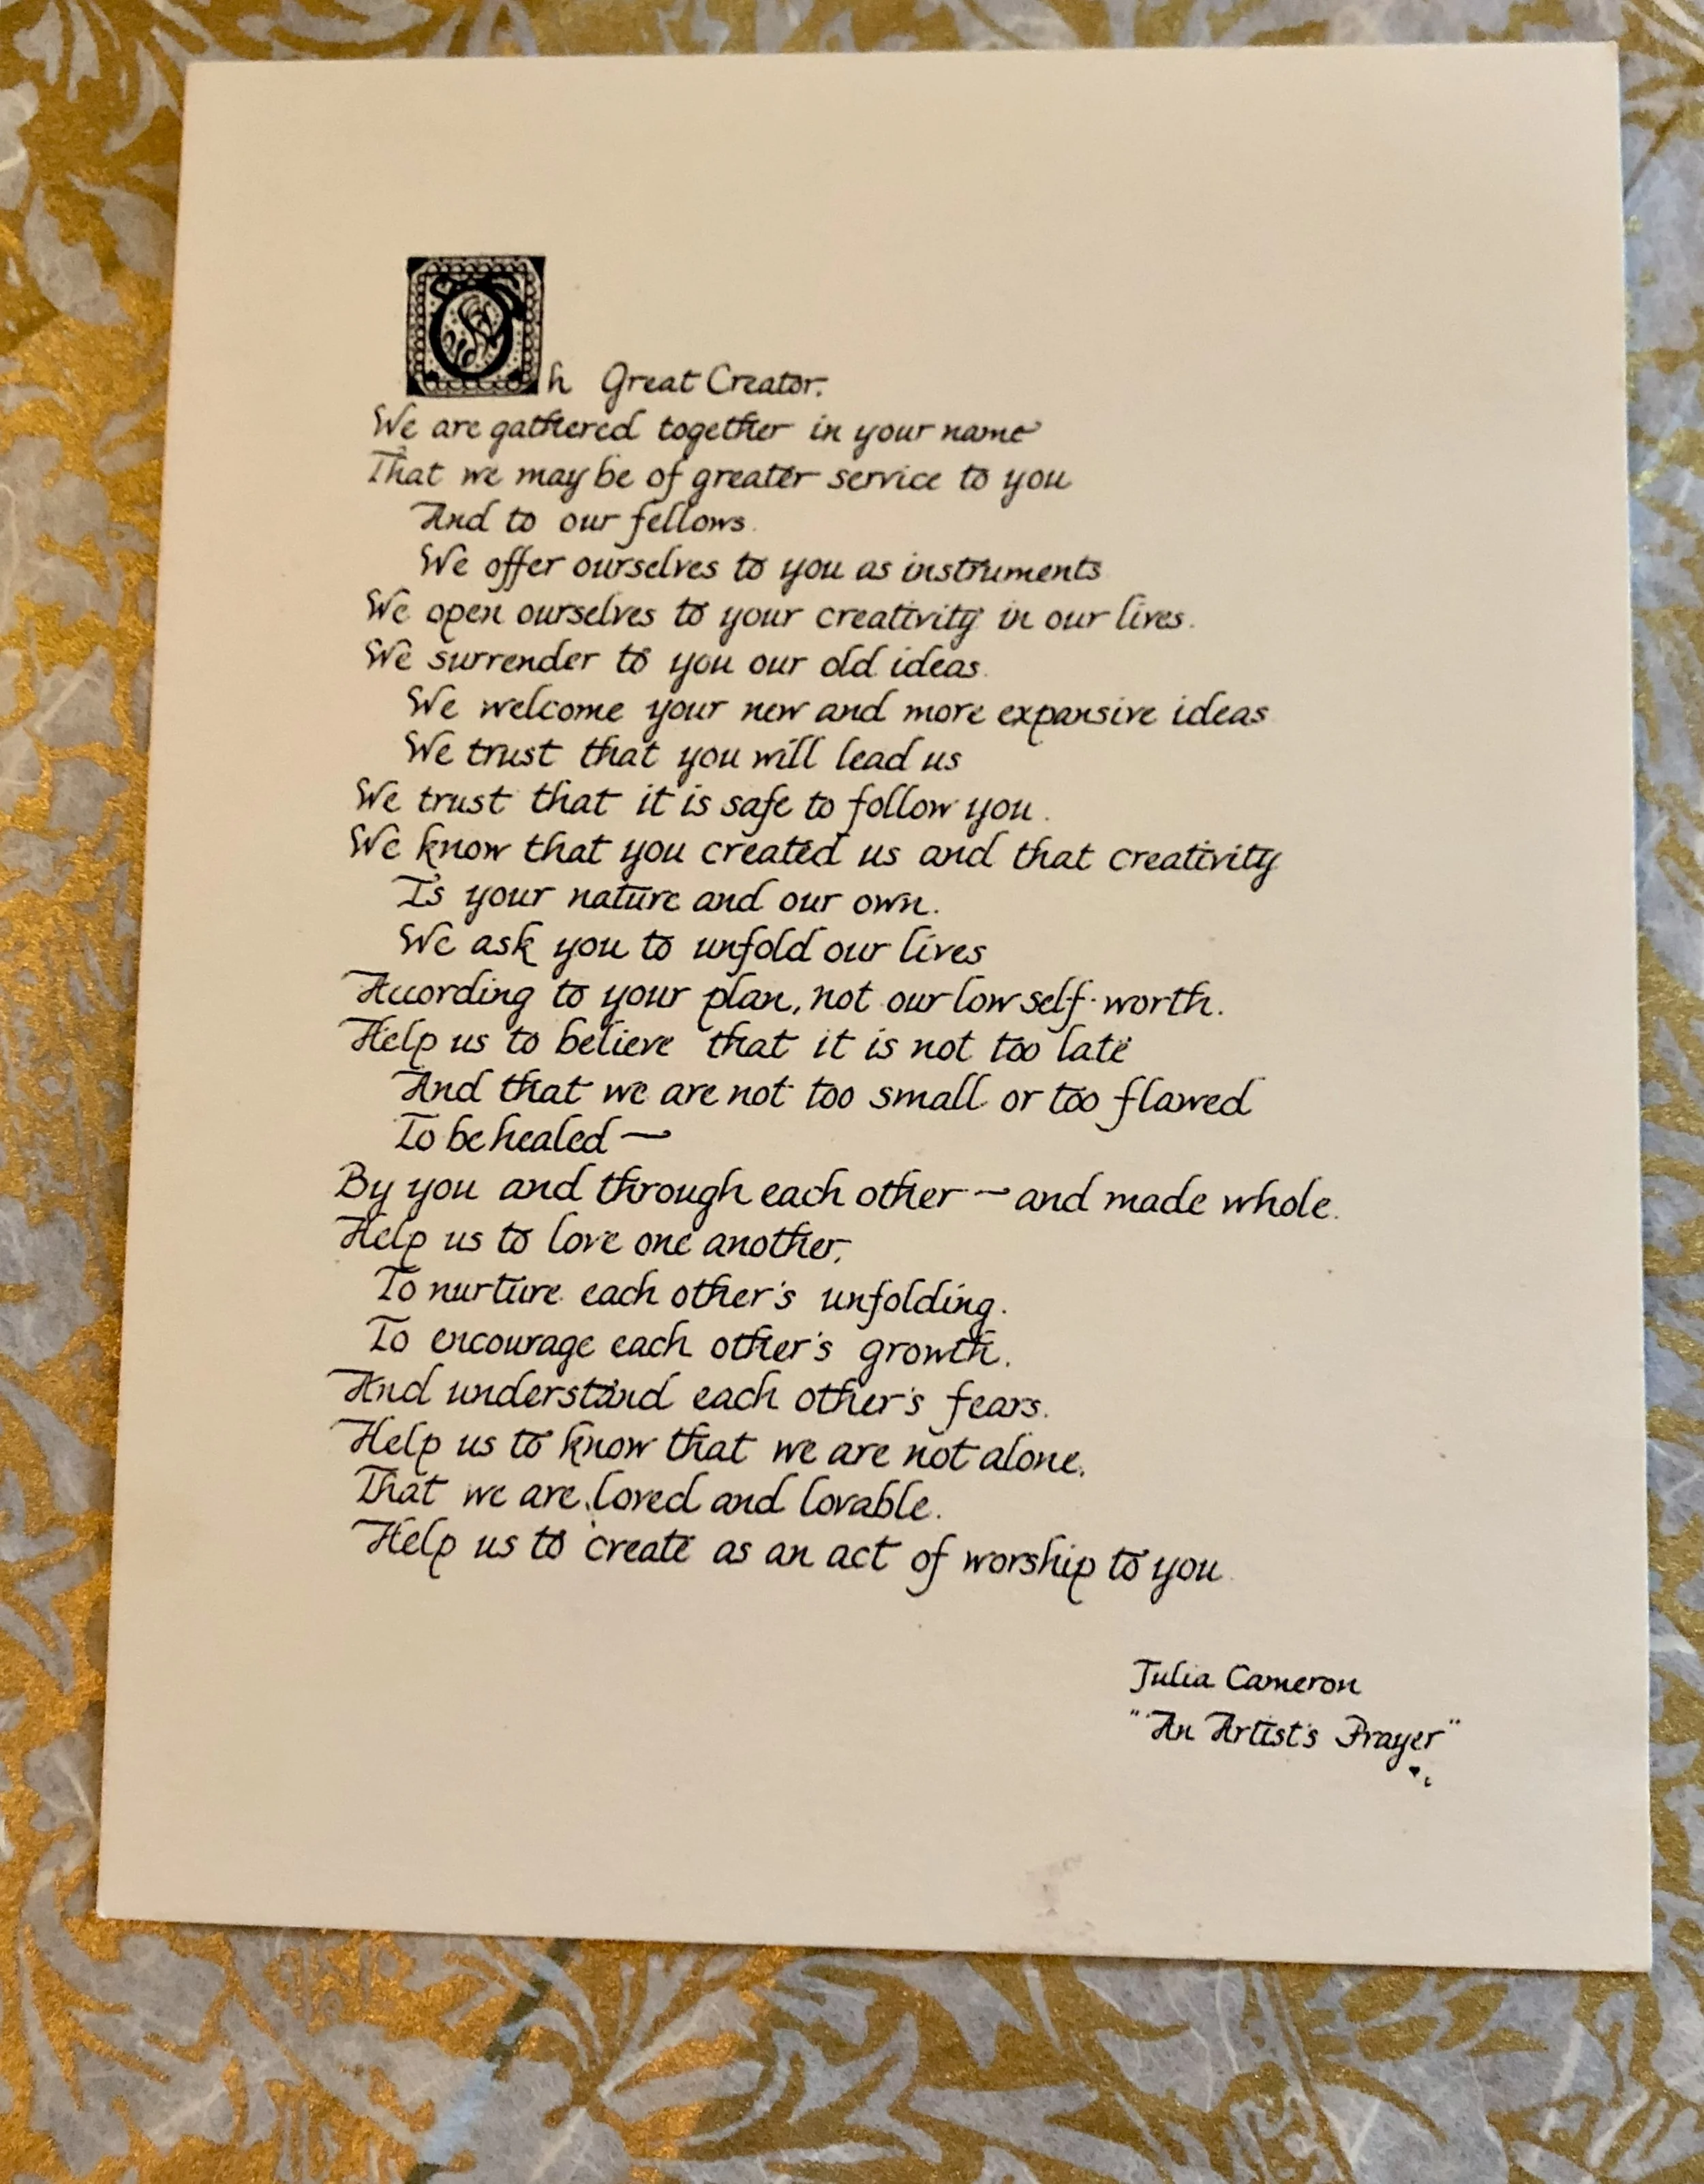 Oh Great Creator.
We are gathered together in your name
That we may be of greater service to you
And to our fellows.
We offer ourselves to you as instruments
We open ourselves to your creativity in our lives.
We surrender to you our old ideas.
We welcome your new and more expansive ideas
We trust that you will lead us
We trust that it is safe to follow you.
We know that you created us and that creativity
Is your nature and our own.
We ask you to unfold our lives
According to your plan, not our low self-worth.
Help us to believe that it is not too late
And that we are not too small or too flawed
To be healed —
By you and through each other — and made whole.
Help us to love one another,
To nurture each other's unfolding.
To encourage each other's growth.
And understand each other's fears.
Help us to know that we are not alone.
That we are loved and lovable.
Help us to create as an act of worship to you.
Julia Cameron
"An Artist's Prayer"